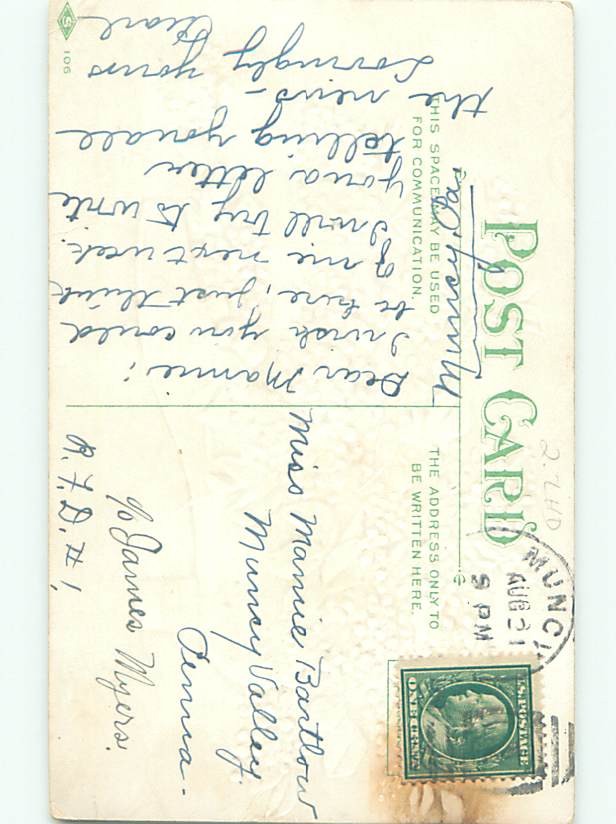 POST CARD
THIS SPACE MAY BE USED
FOR COMMUNICATION.
THE ADDRESS ONLY TO
BE WRITTEN HERE.
Muncy, Pa.
Dear Mamie:
I wish you could
be here, just think
of me next week.
I will try to write
you a letter
telling you all
the news –
Lovingly yours
Miss Mamie Bartlow
Muncy Valley
Penna.
c/o James Myers.
R.F.D. #1,
MUNCY
AUG 21
9 PM
U.S. POSTAGE
ONE CENT
S
106